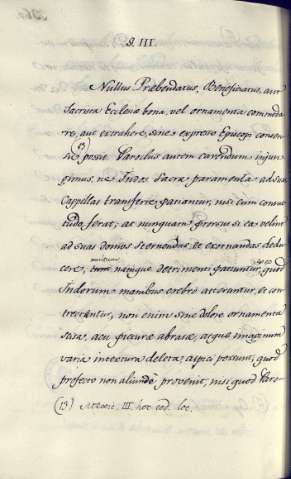 §. III.
Nullus Præbendatus, Beneficiatus, aut
Sacrista Ecclesiæ bona, vel ornamenta commoda-
re, aut extrahere, sine expresso Episcopi consen-
su (13) possit. Parochus autem cavendum injun-
gimus, ne Indos sacra paramenta ad suas
Cappellas transferre patiantur, nisi cum consue-
tudo ferat; ac nunquam prorsus si ea velint
ad suas domos sternendas, et exornandas dedu-
cere, namque detrimenti patiuntur, quod
Indorum manibus crebro atterantur, et con-
trectentur, non enim sine dolore ornamenta
sacra, acu picturæ abrasæ, atque imaginum
varia intextura deleta, aspici possunt, quod
profecto non aliunde provenit, nisi quod Paro-
(13) III. hoc eod. loc.